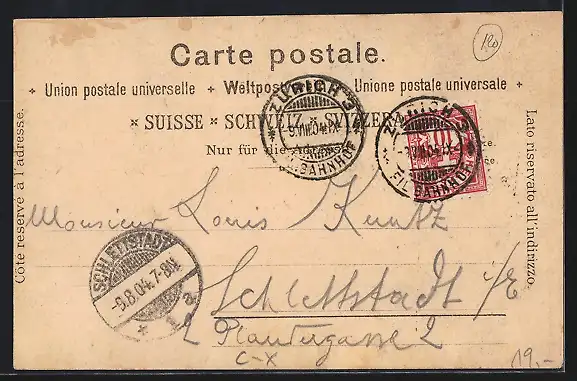 120
Carte postale.
+ Union postale universelle + Weltpostverein + Unione postale universale +
× SUISSE × SCHWEIZ × SVIZZERA ×
Nur für die Adresse
Côté réservé à l'adresse.
Lato riservato all'indirizzo.
ZÜRICH
-9.VIII.04.IX-
FIL. BAHNHOF
ZÜRICH
-9.VIII.04.IX-
FIL. BAHNHOF
10
Monsieur Louis Kuntz
SCHLETTSTADT
-9.8.04.7-8N.
* a
Schlettstadt i/E
2 2
c-x
19,-